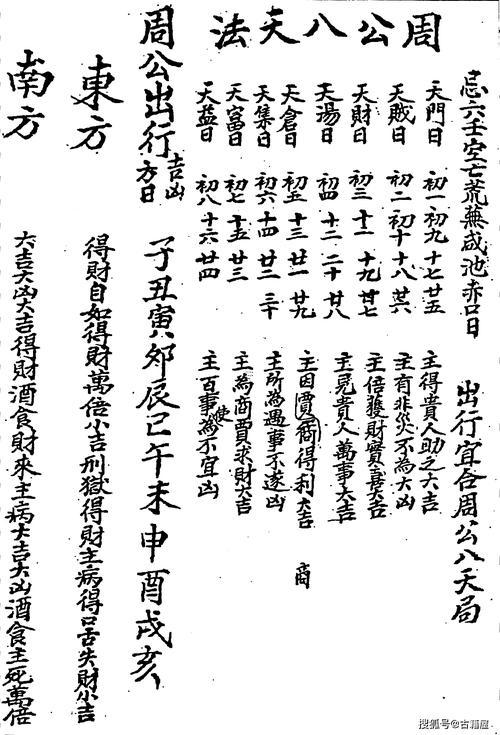 周公八天法
忌六壬空亡荒蕪咸池赤口日 出行宜合周公八天局
天門日 初一 初九 十七 廿五 主得貴人助之大吉
天賊日 初二 初十 十八 廿六 主有非災不為大凶
天財日 初三 十一 十九 廿七 主倍獲財實喜大吉
天湯日 初四 十二 二十 廿八 主見貴人萬事大吉
天倉日 初五 十三 廿一 廿九 主因賈商得利大吉 商
天集日 初六 十四 廿二 三十 主所為遇事不遂凶
天富日 初七 十五 廿三 主為商賈求財大吉
天益日 初八 十六 廿四 主百事使為不宜凶
周公出行吉凶方日 子丑寅卯辰巳午未申酉戌亥
東方 得財自如得財萬倍小吉刑獄得財主病得口舌失財小吉
南方 大吉大凶大吉得財酒食財來主病大吉大凶酒食主死萬倍
搜狐号@古籍屋